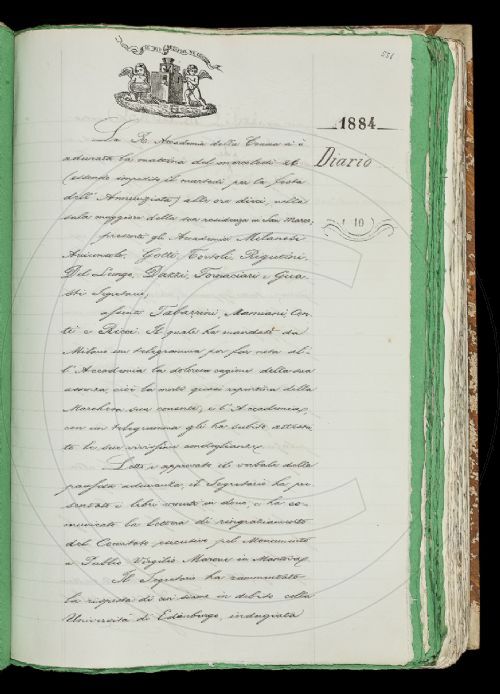 251
1884
Diario
( 10 )
La R. Accademia della Crusca si è
adunata la mattina del mercoledì 26
(essendo impedito il martedì per la festa
dell'Annunziata) alle ore dieci, nella
sala maggiore della sua residenza in San Marco,
presenti gli Accademici Milanesi
Arciconsolo, Gotti, Tortoli, Rigutini,
Del Lungo, Dazzi, Tornaciari e Gua-
sti Segretario;
assenti Tabarrini, Mamiani, Con-
ti e Ricci. Il quale ha mandato da
Milano un telegramma per far nota al-
l'Accademia la dolorosa cagione della sua
assenza, cioè la morte quasi repentina della
Marchesa sua consorte; e l'Accademia,
con un telegramma gli ha subito attesta-
te le sue vivissime condoglianze.
Letto e approvato il verbale della
passata adunanza, il Segretario ha pre-
sentato i libri venuti in dono, e ha co-
municato la lettera di ringraziamento
del Comitato esecutivo pel Monumento
a Publio Virgilio Marone in Mantova.
Il Segretario ha rammentato
la risposta di cui siamo in debito colla
Università di Edinburgo, indugiata